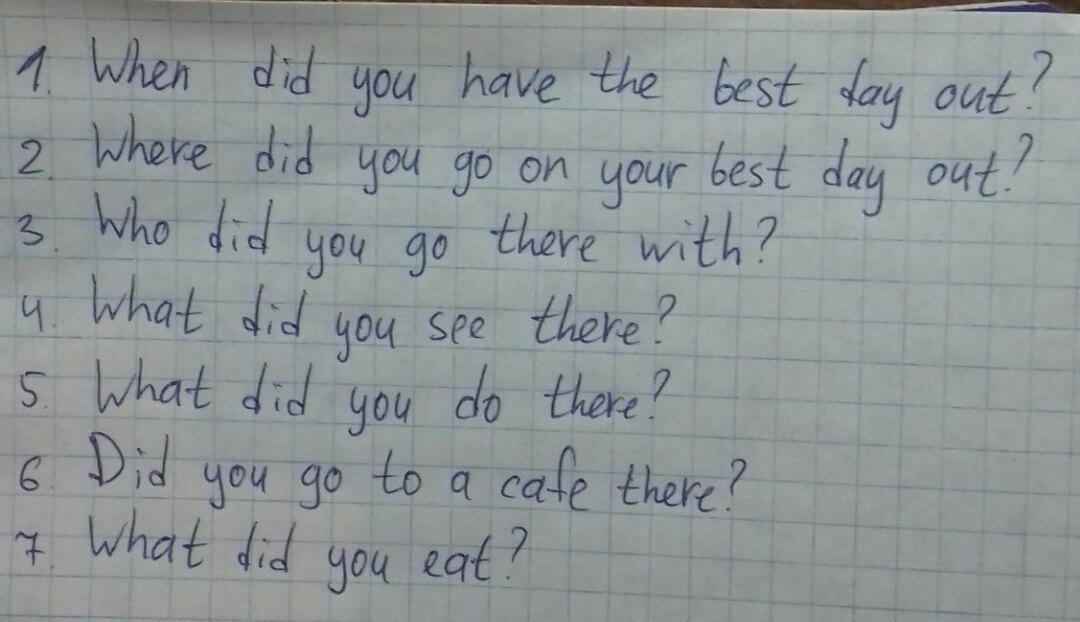 1. When did you have the best day out?
2. Where did you go on your best day out?
3. Who did you go there with?
4. What did you see there?
5. What did you do there?
6. Did you go to a cafe there?
7. What did you eat?